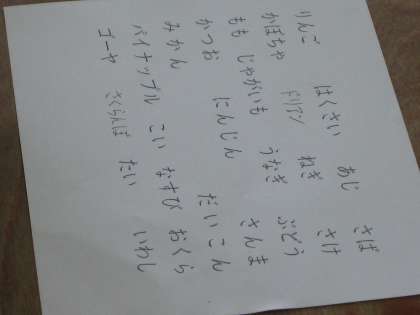 りんご はくさい あじ さば
かぼちゃ ドリアン ねぎ さけ
もも じゃがいも うなぎ ぶどう
かつお にんじん さんま
みかん だいこん
パイナップル こい なすび おくら
ゴーヤ さくらんぼ たい いわし